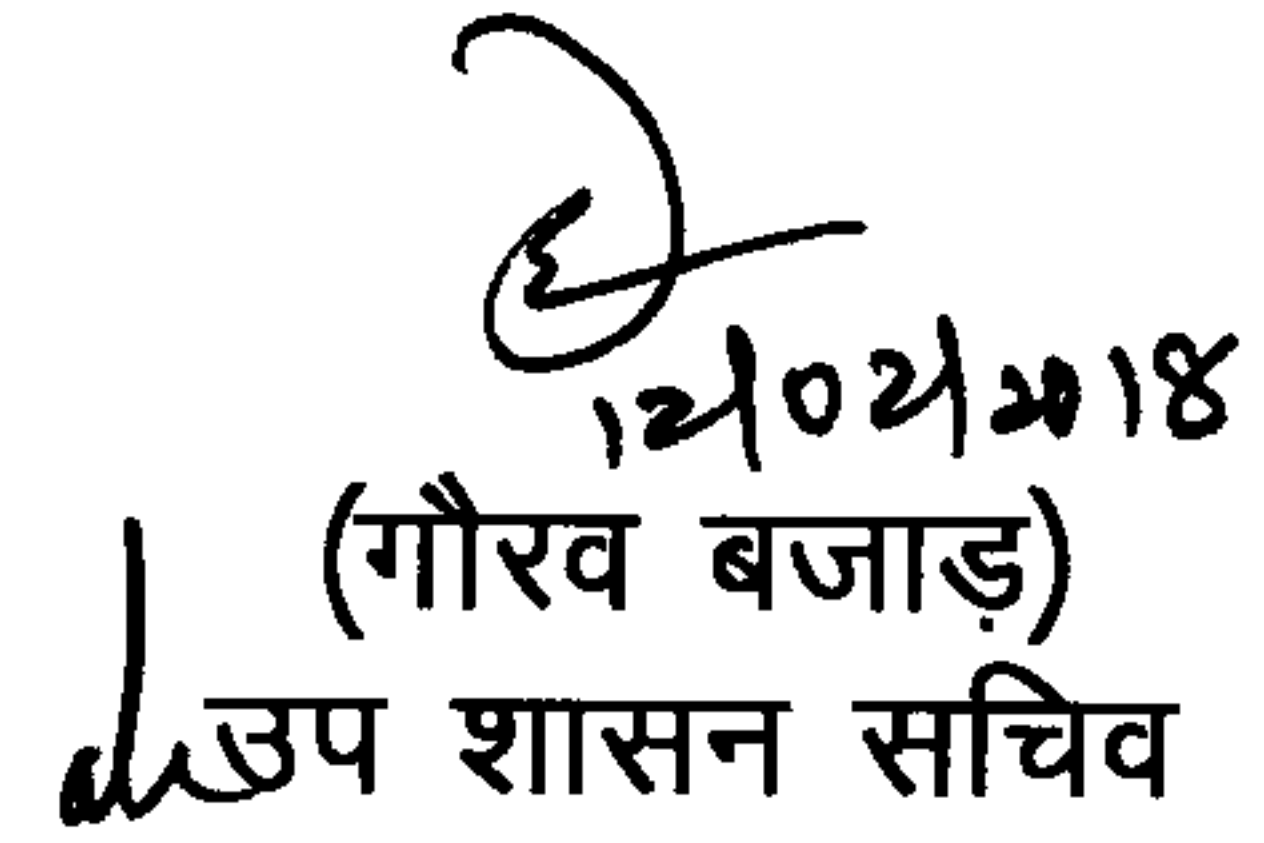 12/02/2018
(गौरव बजाड़)
उप शासन सचिव